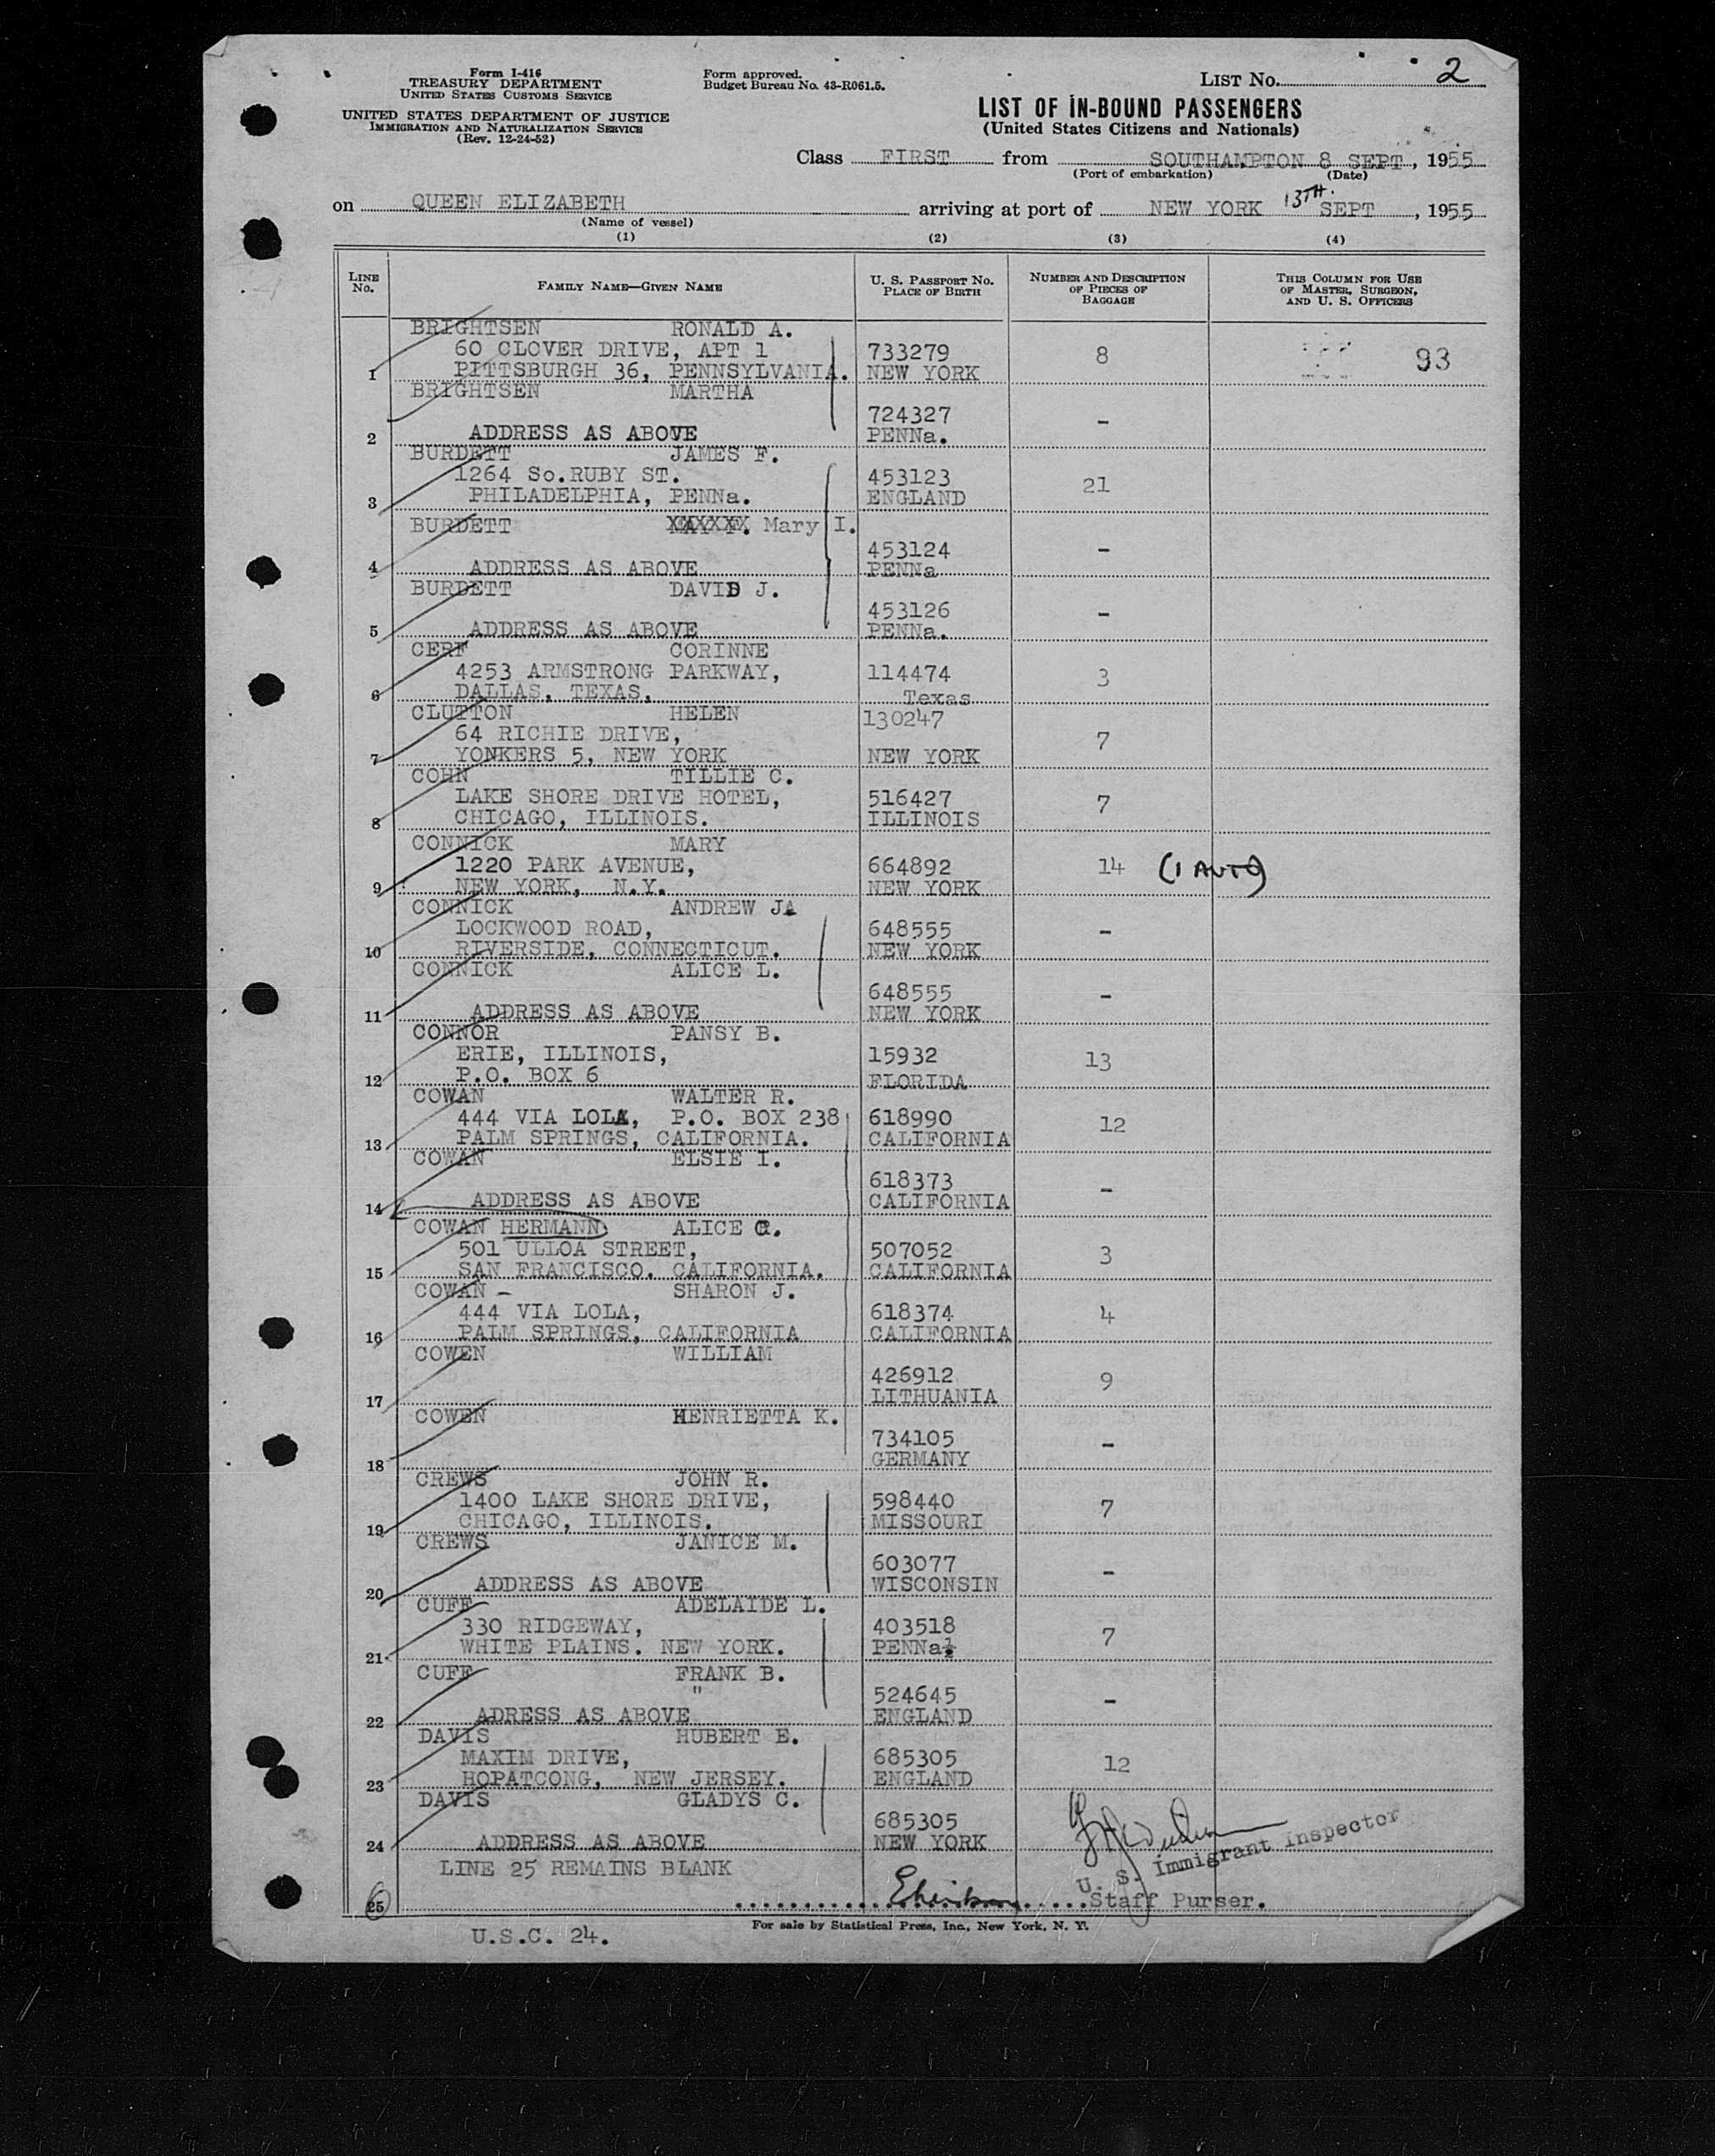 Form I-416
TREASURY DEPARTMENT
UNITED STATES CUSTOMS SERVICE
UNITED STATES DEPARTMENT OF JUSTICE
IMMIGRATION AND NATURALIZATION SERVICE
(Rev. 12-24-52)
Form approved.
Budget Bureau No. 43-R061.5.
LIST No. 2
LIST OF IN-BOUND PASSENGERS
(United States Citizens and Nationals)
Class FIRST from SOUTHAMPTON 8 SEPT, 1955
(Port of embarkation) (Date)
on QUEEN ELIZABETH arriving at port of NEW YORK 13TH. SEPT, 1955
(Name of vessel)
(1) (2) (3) (4)
LINE No. FAMILY NAME—GIVEN NAME U. S. PASSPORT No. PLACE OF BIRTH NUMBER AND DESCRIPTION OF PIECES OF BAGGAGE THIS COLUMN FOR USE OF MASTER, SURGEON, AND U. S. OFFICERS
BRIGHTSEN RONALD A.
60 CLOVER DRIVE, APT 1 733279 8 93
1 PITTSBURGH 36, PENNSYLVANIA. NEW YORK
BRIGHTSEN MARTHA
724327 -
2 ADDRESS AS ABOVE PENNa.
BURDETT JAMES F.
1264 So.RUBY ST. 453123 21
3 PHILADELPHIA, PENNa. ENGLAND
BURDETT Mary I.
453124 -
4 ADDRESS AS ABOVE PENNa
BURDETT DAVID J.
453126 -
5 ADDRESS AS ABOVE PENNa.
CERF CORINNE
4253 ARMSTRONG PARKWAY, 114474 3
6 DALLAS, TEXAS, Texas
CLUTTON HELEN 130247
64 RICHIE DRIVE, 7
7 YONKERS 5, NEW YORK NEW YORK
COHN TILLIE C.
LAKE SHORE DRIVE HOTEL, 516427 7
8 CHICAGO, ILLINOIS. ILLINOIS
CONNICK MARY
1220 PARK AVENUE, 664892 14 (1 AUTO)
9 NEW YORK, N.Y. NEW YORK
CONNICK ANDREW J.
LOCKWOOD ROAD, 648555 -
10 RIVERSIDE, CONNECTICUT. NEW YORK
CONNICK ALICE L.
648555 -
11 ADDRESS AS ABOVE NEW YORK
CONNOR PANSY B.
ERIE, ILLINOIS, 15932 13
12 P.O. BOX 6 FLORIDA
COWAN WALTER R.
444 VIA LOLA, P.O. BOX 238 618990 12
13 PALM SPRINGS, CALIFORNIA. CALIFORNIA
COWAN ELSIE I.
618373 -
14 ADDRESS AS ABOVE CALIFORNIA
COWAN HERMANN ALICE G.
501 ULLOA STREET, 507052 3
15 SAN FRANCISCO. CALIFORNIA. CALIFORNIA
COWAN - SHARON J.
444 VIA LOLA, 618374 4
16 PALM SPRINGS, CALIFORNIA CALIFORNIA
COWEN WILLIAM
426912 9
17 LITHUANIA
COWEN HENRIETTA K.
734105 -
18 GERMANY
CREWS JOHN R.
1400 LAKE SHORE DRIVE, 598440 7
19 CHICAGO, ILLINOIS. MISSOURI
CREWS JANICE M.
603077 -
20 ADDRESS AS ABOVE WISCONSIN
CUFF ADELAIDE L.
330 RIDGEWAY, 403518 7
21 WHITE PLAINS. NEW YORK. PENNa.
CUFF FRANK B.
" 524645 -
22 ADRESS AS ABOVE ENGLAND
DAVIS HUBERT E.
MAXIM DRIVE, 685305 12
23 HOPATCONG, NEW JERSEY. ENGLAND
DAVIS GLADYS C.
685305
24 ADDRESS AS ABOVE NEW YORK
U. S. Immigrant Inspector
LINE 25 REMAINS BLANK
25 Staff Purser.
6
For sale by Statistical Press, Inc., New York, N. Y.
U.S.C. 24.